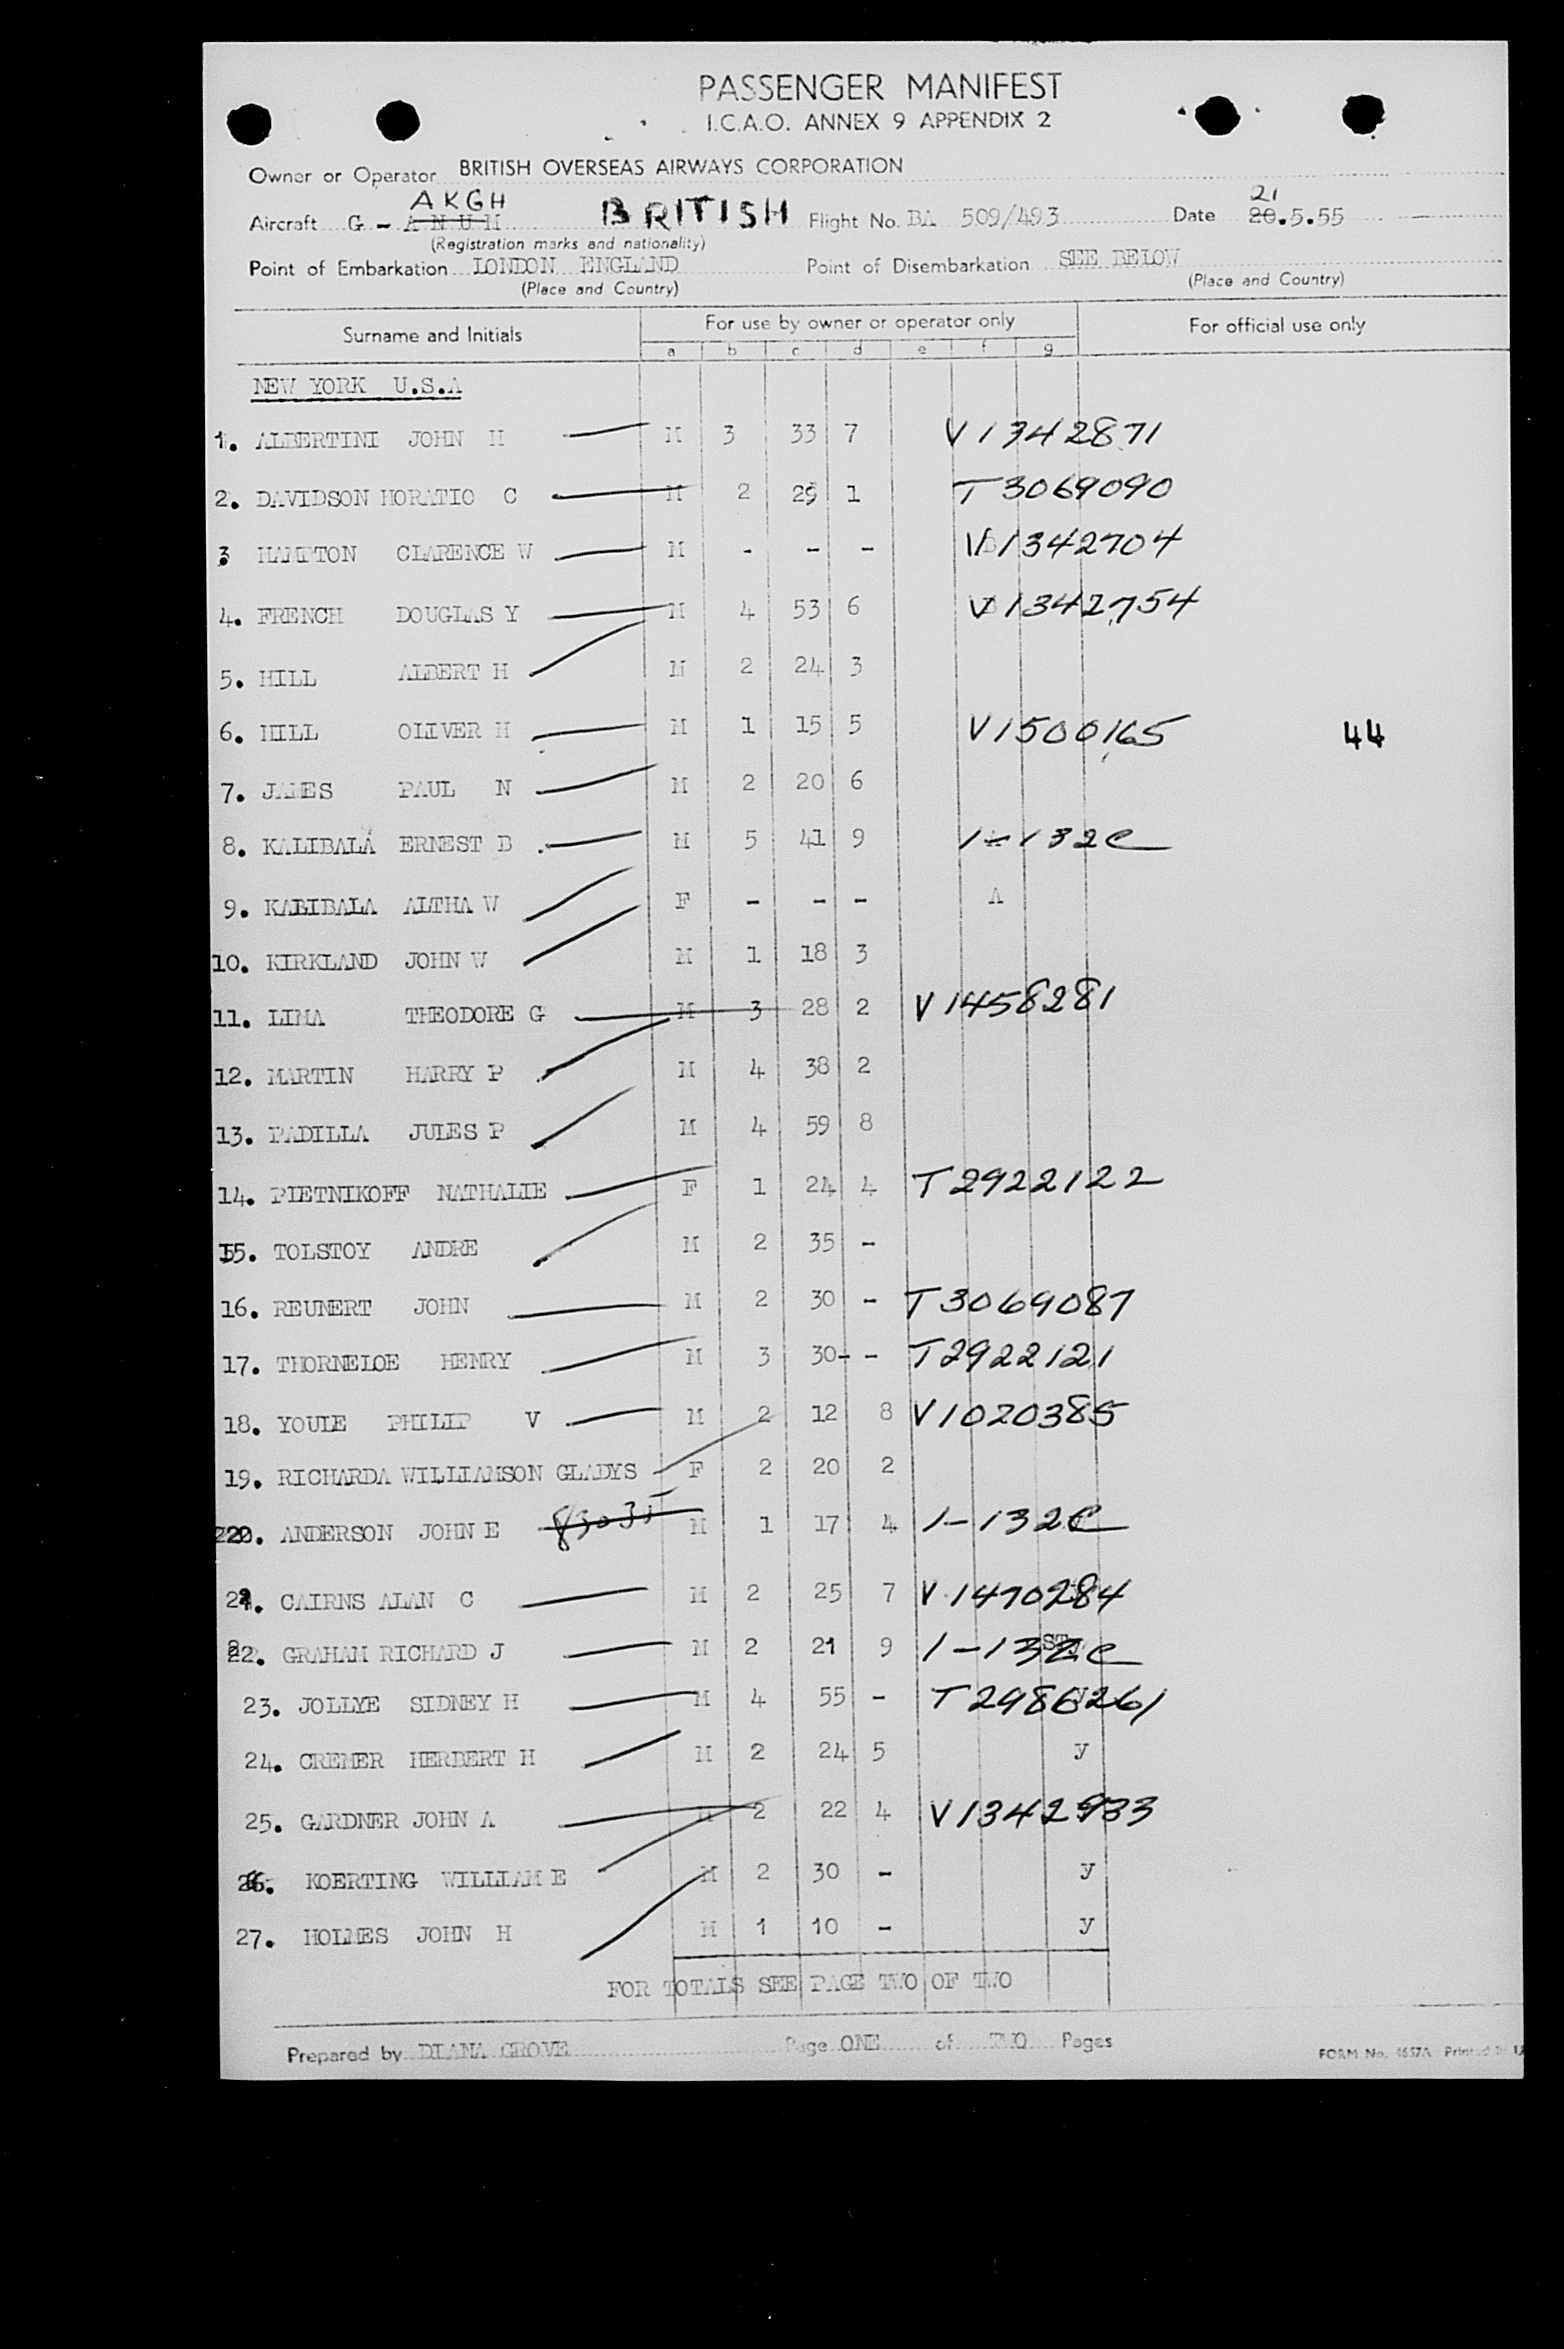 PASSENGER MANIFEST
I.C.A.O. ANNEX 9 APPENDIX 2
Owner or Operator BRITISH OVERSEAS AIRWAYS CORPORATION
AKGH 21
Aircraft G - A N U M BRITISH Flight No. BA 509/493 Date 20.5.55
(Registration marks and nationality)
Point of Embarkation LONDON ENGLAND Point of Disembarkation SEE BELOW
(Place and Country) (Place and Country)
Surname and Initials For use by owner or operator only For official use only
a b c d e f g
NEW YORK U.S.A
1. ALBERTINI JOHN H M 3 33 7 V1342871
2. DAVIDSON HORATIO C M 2 25 1 T3069090
3. HAMPTON CLARENCE W M - - - V1342704
4. FRENCH DOUGLAS Y M 4 53 6 V1342754
5. HILL ALBERT H M 2 24 3
6. HILL OLIVER H M 1 15 5 V1500165 44
7. JAMES PAUL N M 2 20 6
8. KALIBALA ERNEST B M 5 41 9 1-132C
9. KALIBALA ALTHA W F - - - A
10. KIRKLAND JOHN W M 1 18 3
11. LIMA THEODORE G M 3 28 2 V1458281
12. MARTIN HARRY P M 4 38 2
13. PADILLA JULES P M 4 59 8
14. PIETNIKOFF NATHALIE F 1 24 4 T2922122
15. TOLSTOY ANDRE M 2 35 -
16. REUNERT JOHN M 2 30 - T3069087
17. THORNELOE HENRY M 3 30- - T2922121
18. YOUIE PHILIP V M 2 12 8 V1020385
19. RICHARDA WILLIAMSON GLADYS F 2 20 2
20. ANDERSON JOHN E 83035 M 1 17 4 1-132C
21. CAIRNS ALAN C M 2 25 7 V1470284
22. GRAHAM RICHARD J M 2 21 9 1-132C
23. JOLLYE SIDNEY H M 4 55 - T2986261
24. CREMER HERBERT H M 2 24 5 y
25. GARDNER JOHN A M 2 22 4 V1342933
26. KOERTING WILLIAM E M 2 30 - y
27. HOLMES JOHN H M 1 10 - y
FOR TOTALS SEE PAGE TWO OF TWO
Prepared by DIANA GROVE Page ONE of TWO Pages
FORM No.